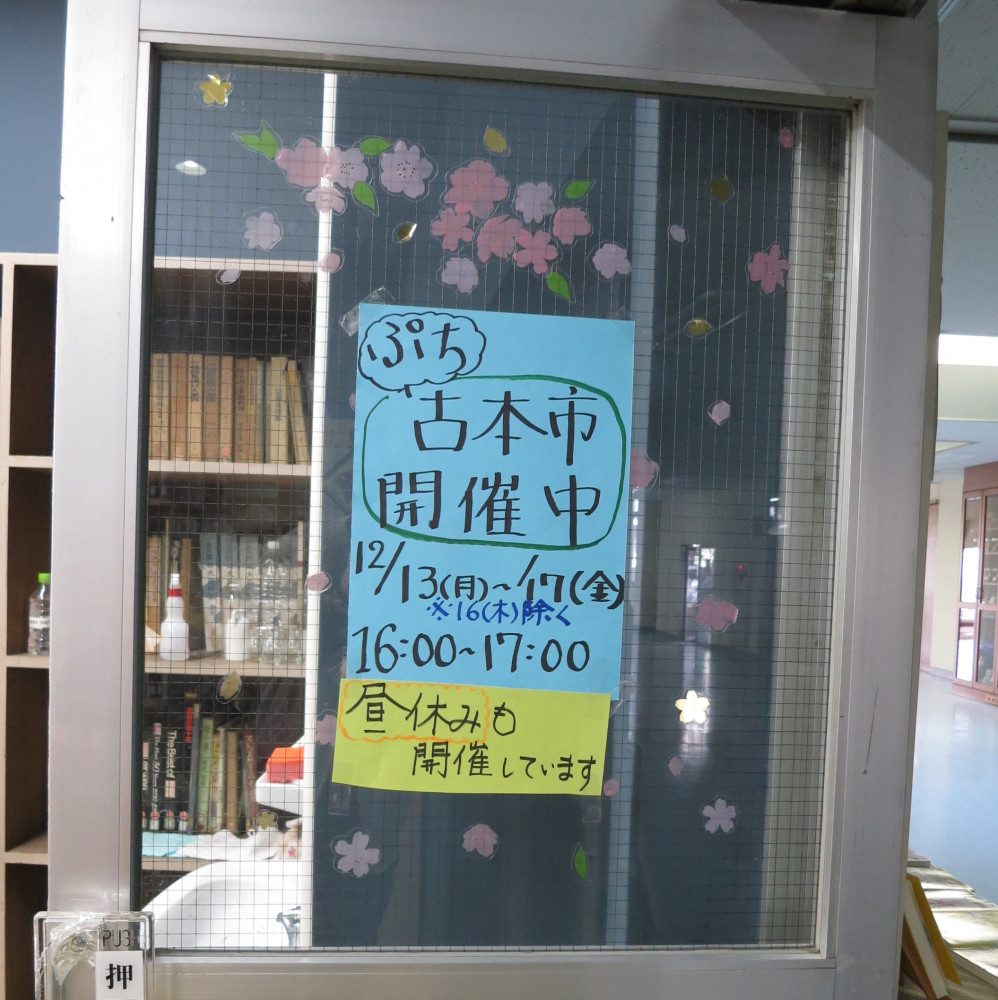 ぷち
古本市
開催中
12/13(月)~/17(金)
※16(木)除く
16:00~17:00
昼休みも
開催しています
The Best of
押